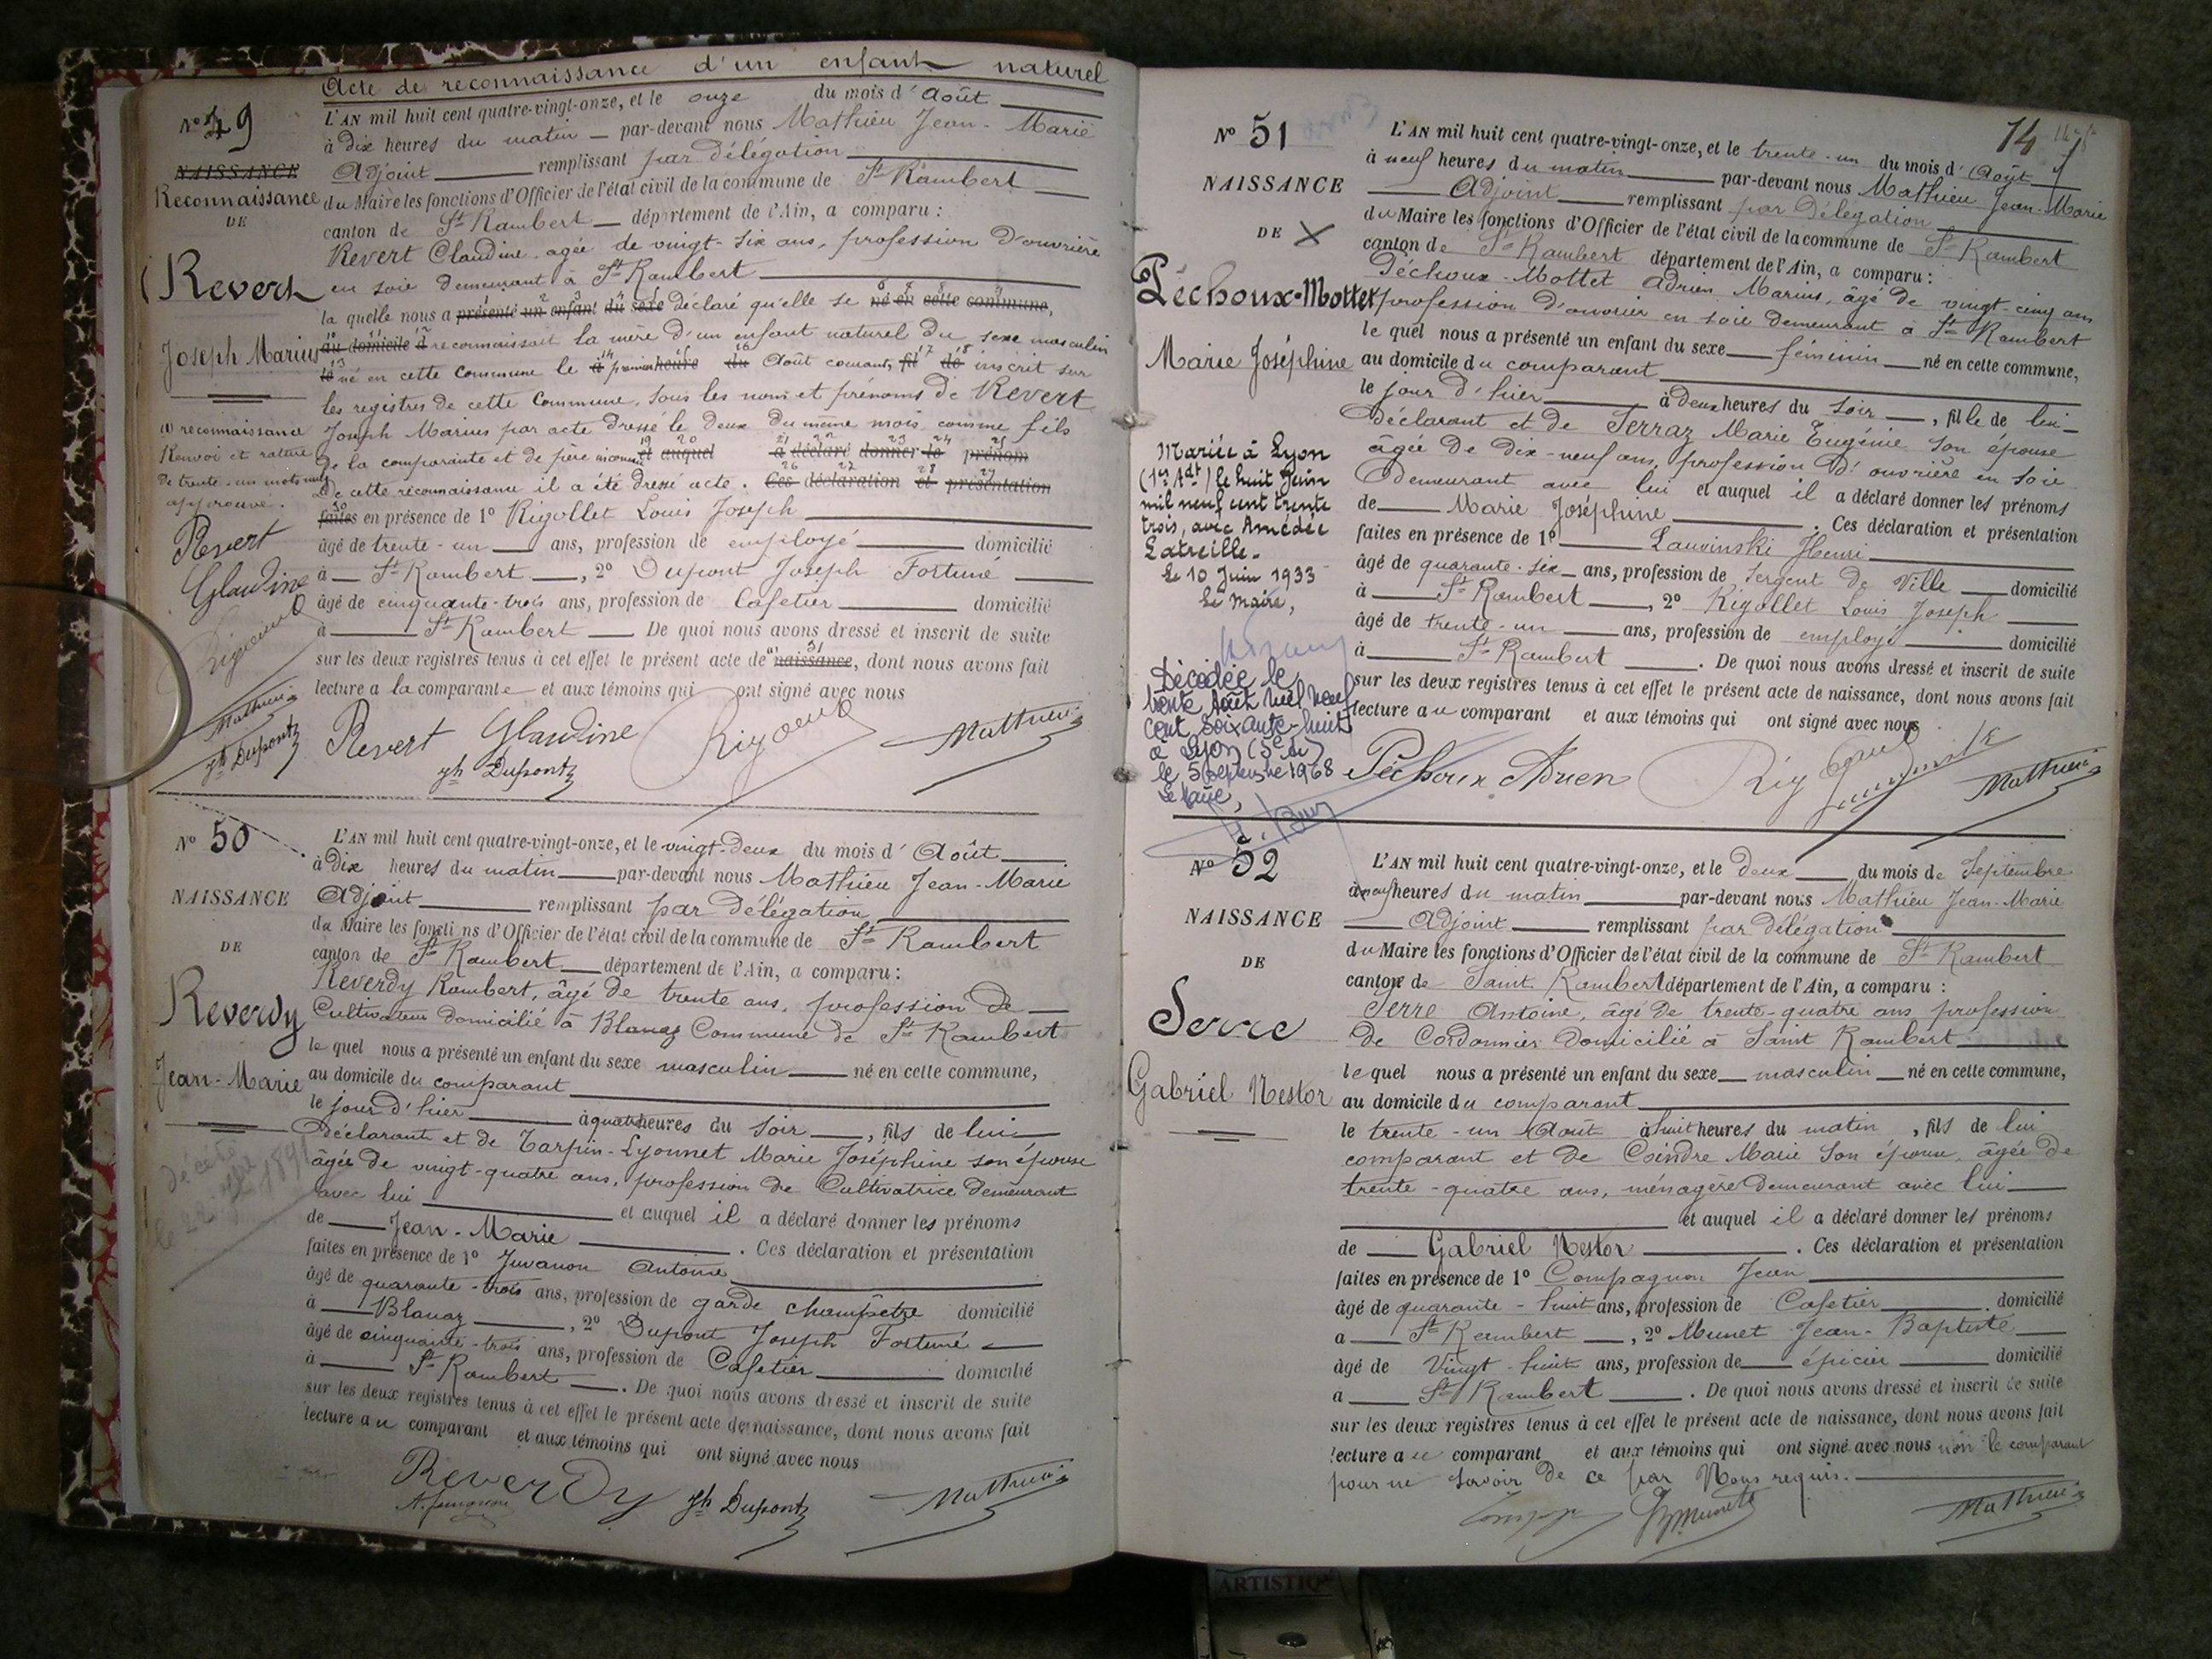 Acte de reconnaissance d'un enfant naturel
N° 49
NAISSANCE
Reconnaissance
DE
Revert
Joseph Marius
(1) reconnaissance
Renvoi et rature
de trente-un mots nuls
approuvé.
Revert
Glaudine
Mathieu
Jh Dupont
L'AN mil huit cent quatre-vingt-onze, et le onze du mois d'Août
à dix heures du matin par-devant nous Mathieu Jean-Marie
Adjoint remplissant par délégation
du Maire les fonctions d'Officier de l'état civil de la commune de St Rambert
canton de St Rambert département de l'Ain, a comparu :
Revert Claudine, agée de vingt-six ans, profession d'ouvrière
en soie demeurant à St Rambert
la quelle nous a présenté un enfant du sexe déclaré qu'elle se né en cette commune,
au domicile d reconnaissait la mère d'un enfant naturel du sexe masculin
le né en cette commune le à premier heure du Août courant, fil de inscrit sur
les registres de cette commune, sous les nom et prénoms de Revert
Joseph Marius par acte dressé le deux du même mois comme fils
de la comparante et de père inconnu et auquel a déclaré donner le prénom
De cette reconnaissance il a été dressé acte. Ces déclaration et présentation
faites en présence de 1° Rigollet Louis Joseph
âgé de trente-un ans, profession de employé domicilié
à St Rambert, 2° Dupont Joseph Fortuné
âgé de cinquante-trois ans, profession de Cafetier domicilié
à St Rambert De quoi nous avons dressé et inscrit de suite
sur les deux registres tenus à cet effet le présent acte de (1) naissance, dont nous avons fait
lecture a la comparante et aux témoins qui ont signé avec nous
Revert Glaudine Mathieu
Jh Dupont
N° 50
NAISSANCE
DE
Reverdy
Jean-Marie
décédé
le 22 1891
L'AN mil huit cent quatre-vingt-onze, et le vingt-deux du mois d'Août
à dix heures du matin par-devant nous Mathieu Jean-Marie
Adjoint remplissant par délégation
du Maire les foncti ns d'Officier de l'état civil de la commune de St Rambert
canton de St Rambert département de l'Ain, a comparu :
Reverdy Rambert, âgé de trente ans, profession de
Cultivateur domicilié à Blanaz Commune de St Rambert
le quel nous a présenté un enfant du sexe masculin né en cette commune,
au domicile du comparant
le jour d'hier à quatre heures du soir, fils de lui
déclarant et de Tarpin-Lyonnet Marie Joséphine son épouse
âgée de vingt-quatre ans, profession de Cultivatrice demeurant
avec lui et auquel il a déclaré donner les prénoms
de Jean-Marie. Ces déclaration et présentation
faites en présence de 1° Juvanon Antoine
âgé de quarante-trois ans, profession de garde champêtre domicilié
à Blanaz, 2° Dupont Joseph Fortuné
âgé de cinquante-trois ans, profession de Cafetier domicilié
à St Rambert. De quoi nous avons dressé et inscrit de suite
sur les deux registres tenus à cet effet le présent acte de naissance, dont nous avons fait
lecture au comparant et aux témoins qui ont signé avec nous
Reverdy Jh Dupont Mathieu
14
N° 51
NAISSANCE
DE X
Péchoux-Mottet
Marie Joséphine
Mariée à Lyon
(1er Adt) le huit Juin
mil neuf cent trente
trois, avec Amédée
Latreille.
Le 10 Juin 1933
Le Maire,
Décédée le
trente Août mil neuf
cent soixante-huit
à Lyon (5e At)
le 5 septembre 1968
Le Maire,
L'AN mil huit cent quatre-vingt-onze, et le trente-un du mois d'Août
à neuf heures du matin par-devant nous Mathieu Jean-Marie
Adjoint remplissant par délégation
du Maire les fonctions d'Officier de l'état civil de la commune de St Rambert
canton de St Rambert département de l'Ain, a comparu :
Péchoux-Mottet Adrien Marius, âgé de vingt-cinq ans
profession d'ouvrier en soie demeurant à St Rambert
le quel nous a présenté un enfant du sexe féminin né en cette commune,
au domicile du comparant
le jour d'hier à deux heures du soir, fille de lui
déclarant et de Serraz Marie Eugénie son épouse
âgée de dix-neuf ans, profession d'ouvrière en soie
demeurant avec lui et auquel il a déclaré donner les prénoms
de Marie Joséphine. Ces déclaration et présentation
faites en présence de 1° Lauvinski Henri
âgé de quarante-six ans, profession de Sergent de Ville domicilié
à St Rambert, 2° Rigollet Louis Joseph
âgé de trente-un ans, profession de employé domicilié
à St Rambert. De quoi nous avons dressé et inscrit de suite
sur les deux registres tenus à cet effet le présent acte de naissance, dont nous avons fait
lecture au comparant et aux témoins qui ont signé avec nous
Péchoux Adrien Mathieu
N° 52
NAISSANCE
DE
Serre
Gabriel Nestor
L'AN mil huit cent quatre-vingt-onze, et le deux du mois de Septembre
à neuf heures du matin par-devant nous Mathieu Jean-Marie
Adjoint remplissant par délégation
du Maire les fonctions d'Officier de l'état civil de la commune de St Rambert
canton de Saint Rambert département de l'Ain, a comparu :
Serre Antoine, âgé de trente-quatre ans profession
de Cordonnier domicilié à Saint Rambert
lequel nous a présenté un enfant du sexe masculin né en cette commune,
au domicile du comparant
le trente-un Août à huit heures du matin, fils de lui
comparant et de Coindre Marie son épouse, âgée de
trente-quatre ans, ménagère demeurant avec lui
et auquel il a déclaré donner les prénoms
de Gabriel Nestor. Ces déclaration et présentation
faites en présence de 1° Compagnon Jean
âgé de quarante-huit ans, profession de Cafetier domicilié
a St Rambert, 2° Munet Jean-Baptiste
âgé de Vingt-huit ans, profession de épicier domicilié
a St Rambert. De quoi nous avons dressé et inscrit de suite
sur les deux registres tenus à cet effet le présent acte de naissance, dont nous avons fait
lecture au comparant et aux témoins qui ont signé avec nous non le comparant
pour ne savoir de ce par Nous requis.
Mathieu
ARTISTIQ